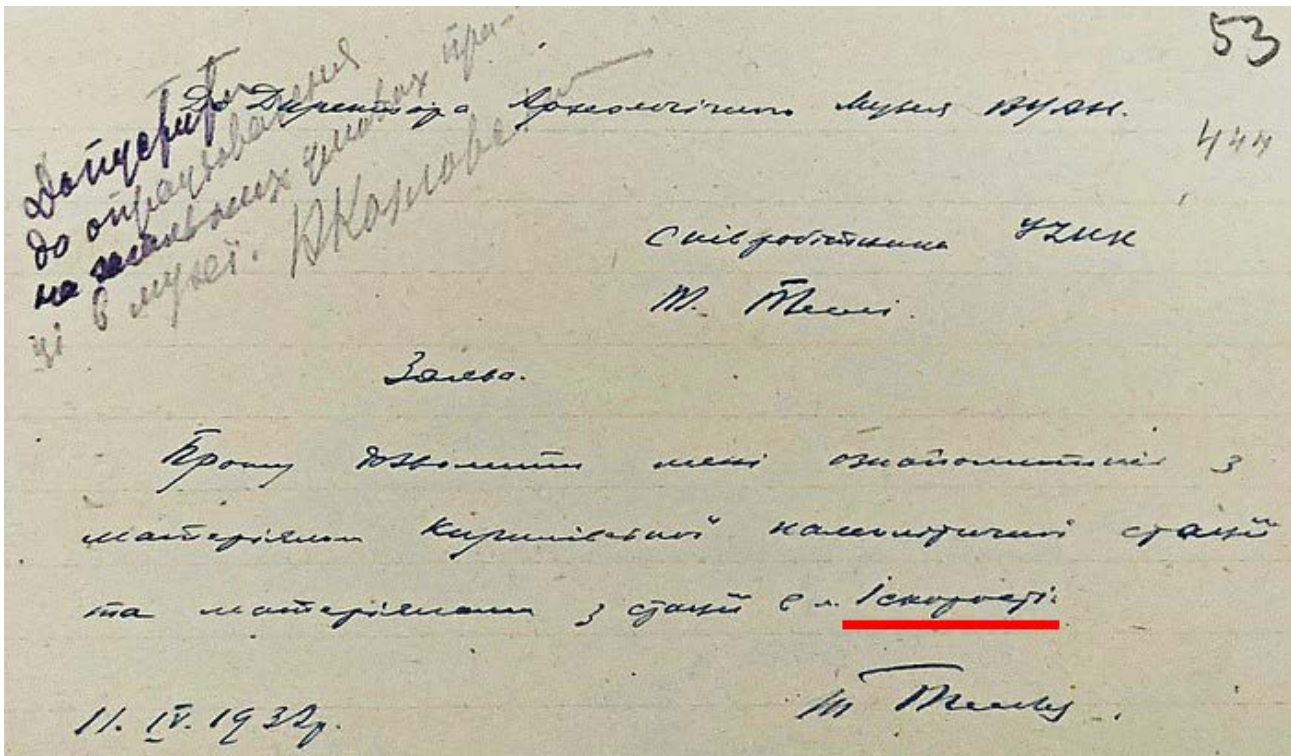 53
444
Допустити
до опрацювання
на загальних умовах пра-
ці в музеї. ВКозловська
До Директора Археологічного Музея ВУАН.
Співробітника
Т. Теслі.
Заява.
Прошу дозволити мені ознайомитись з
матеріялом Кирилівської палеолітичної стації
та матеріялами з стації в м. Іскорості.
11. IV. 1932р.
Т Тесля.